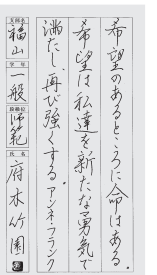 希望のあるところに命はある。
希望は私達を新たな勇気で
満たし、再び強くする。アンネ・フランク
支部名
福山
学年
一般
段級位
師範
氏名
府木竹園